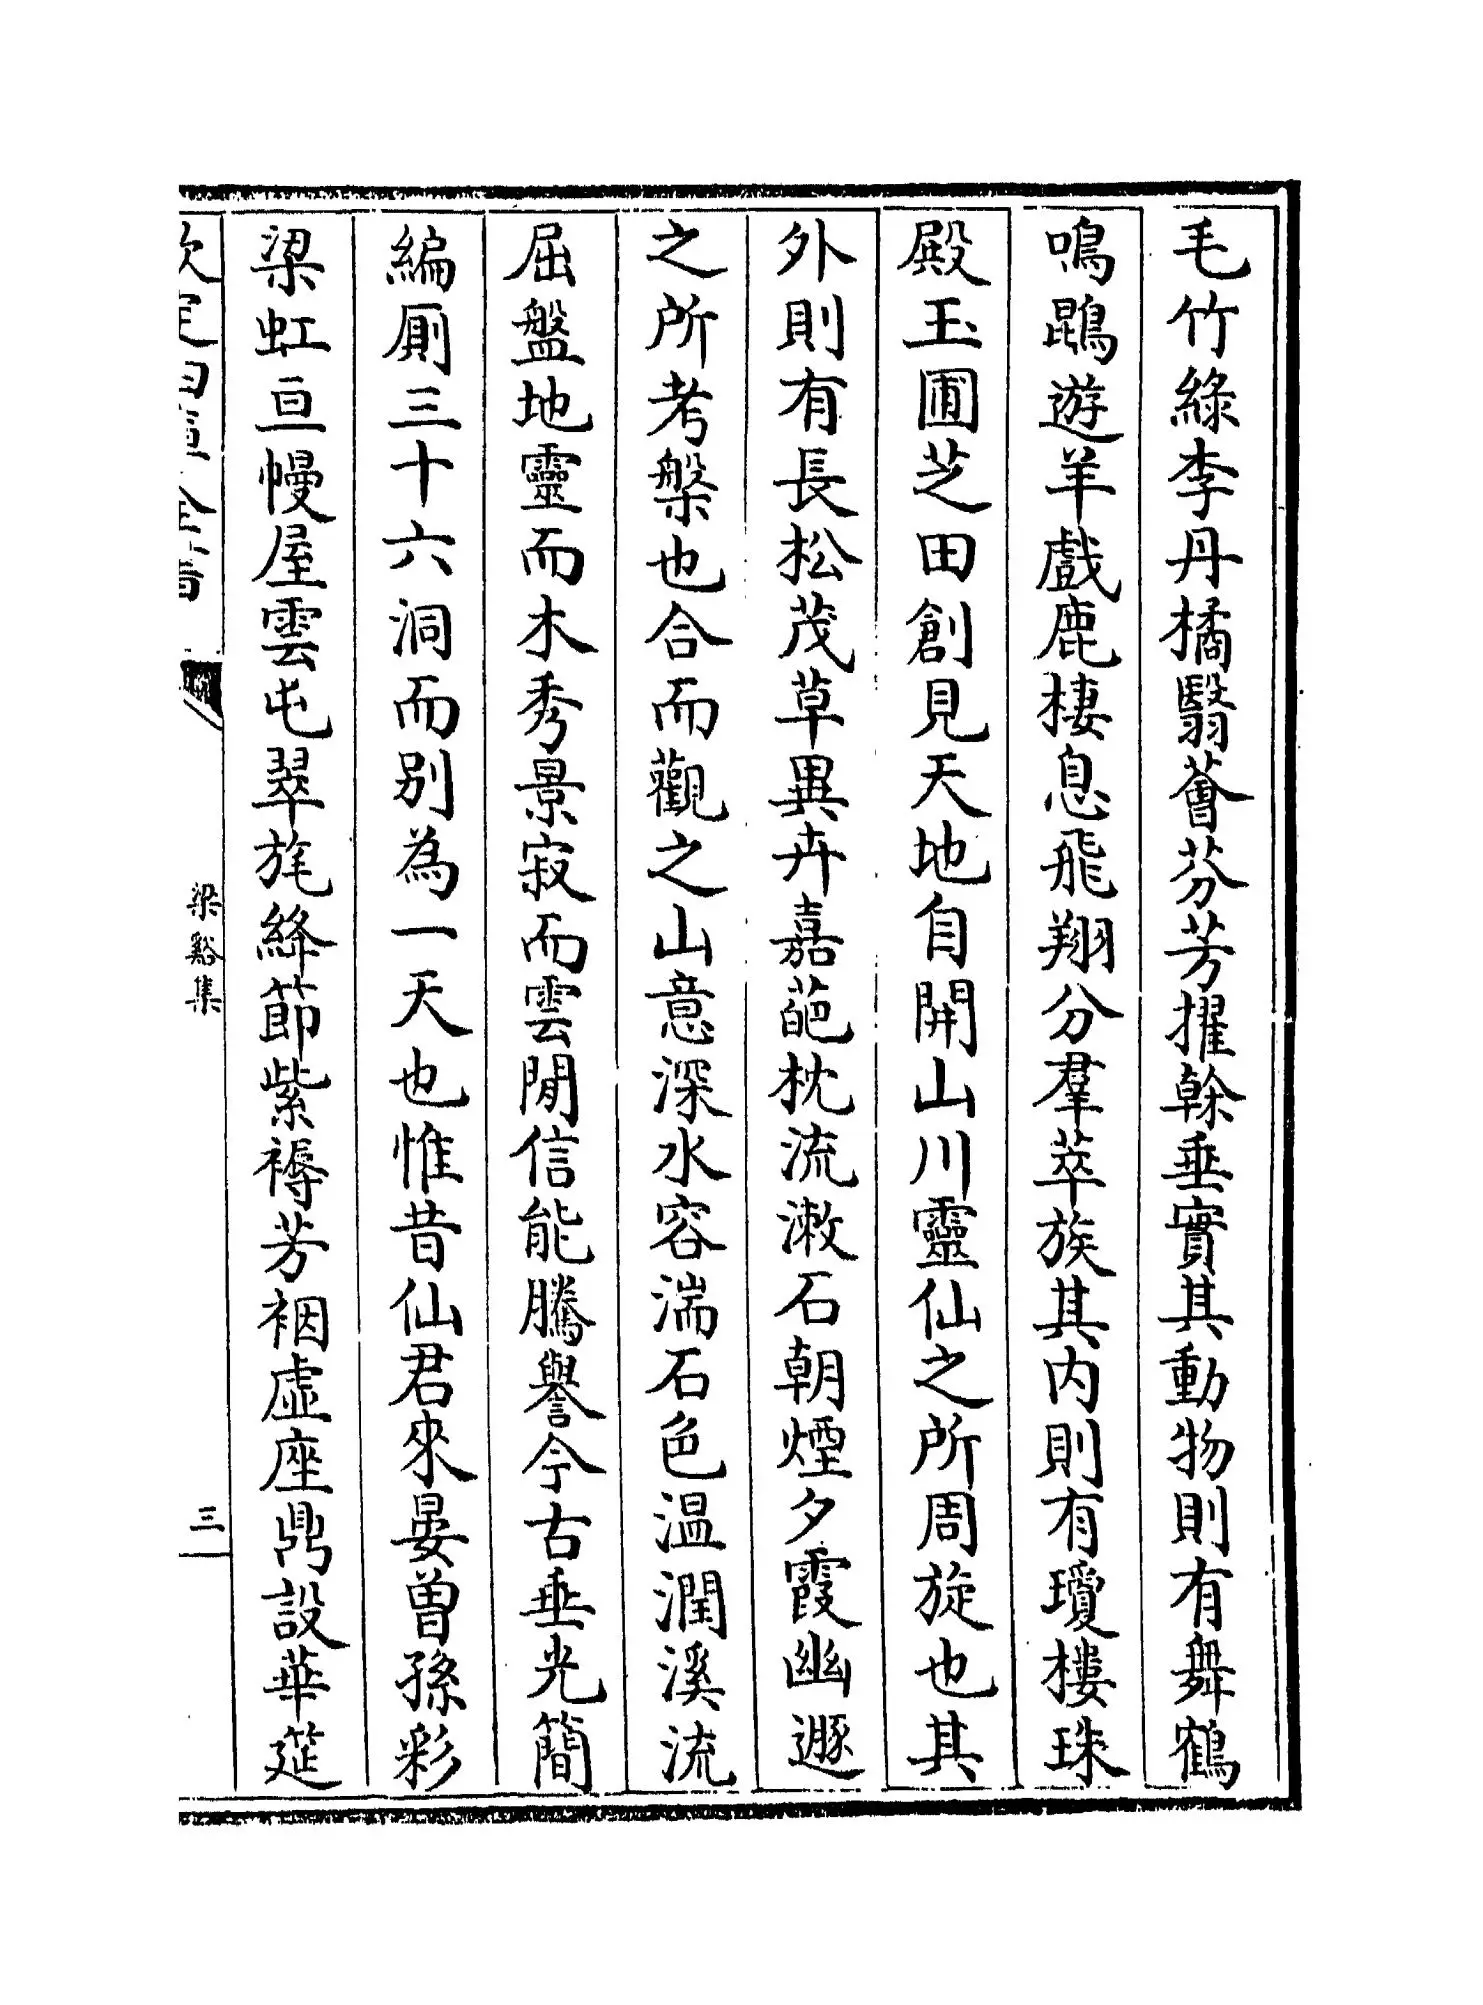 毛竹綠李丹橘翳薈芬芳擢榦垂實其動物則有舞鶴
鳴鵾遊羊戲鹿棲息飛翔分羣萃族其内則有瓊樓珠
殿玉圃芝田創見天地自開山川靈仙之所周旋也其
外則有長松茂草異卉嘉葩枕流漱石朝煙夕霞幽遯
之所考槃也合而觀之山意深水容湍石色温潤溪流
屈盤地靈而木秀景寂而雲閒信能騰譽今古垂光簡
編厠三十六洞而别為一天也惟昔仙君來晏曽孫彩
梁虹亘幔屋雲屯翠旄絳節紫褥芳裀虚座鼎設華筵
欽定四庫全書
梁谿集
三